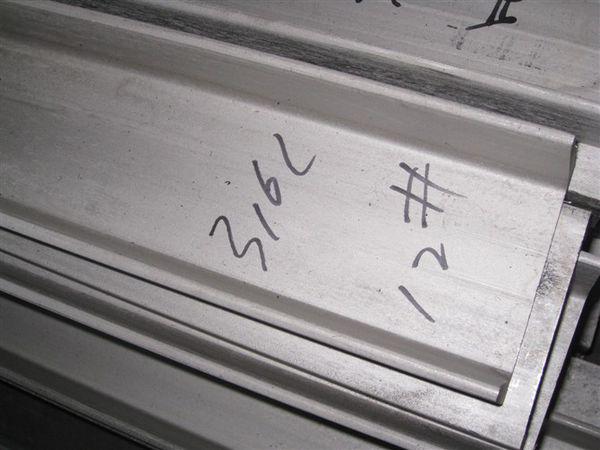 316L
12#